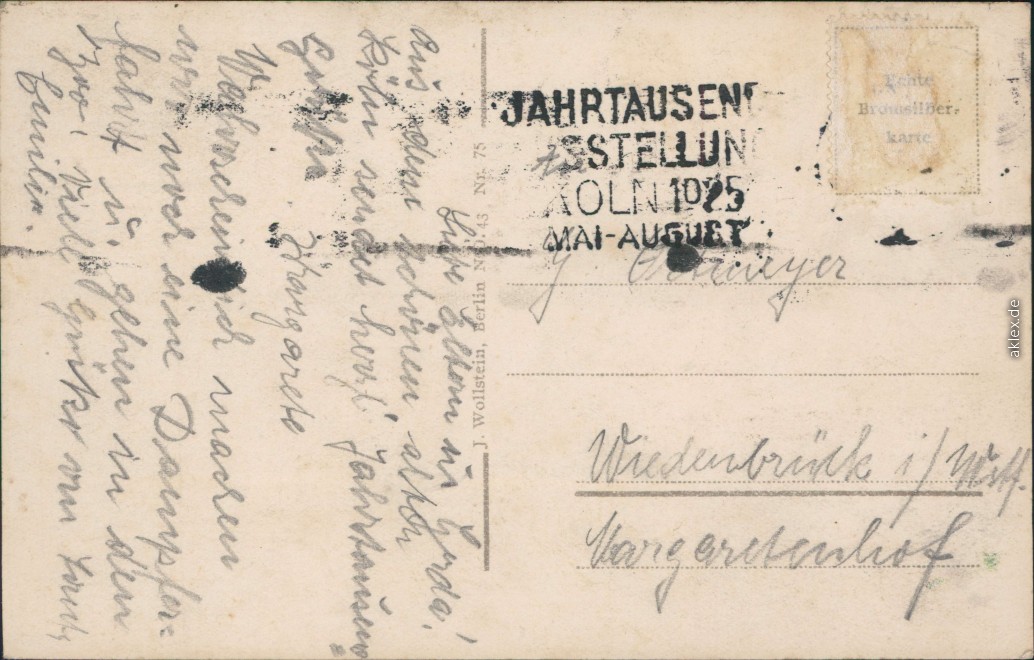 Liebe Eltern u. Gerda!
Aus dem schönen alten
Köln sendet herzl. Jahrtausend
Grüße
Margarete
Wahrscheinlich machen
wir zwei eine Dampfer-
fahrt u. gehen in den
Zoo. Viele Grüße von
J. Wollstein, Berlin NO. 43 Nr. 75
JAHRTAUSEND
AUSSTELLUNG
KÖLN 1925
MAI-AUGUST
Echte
Bromsilber-
karte
Wiedenbrück i/Westf.
Margaretenhof
aklex.de